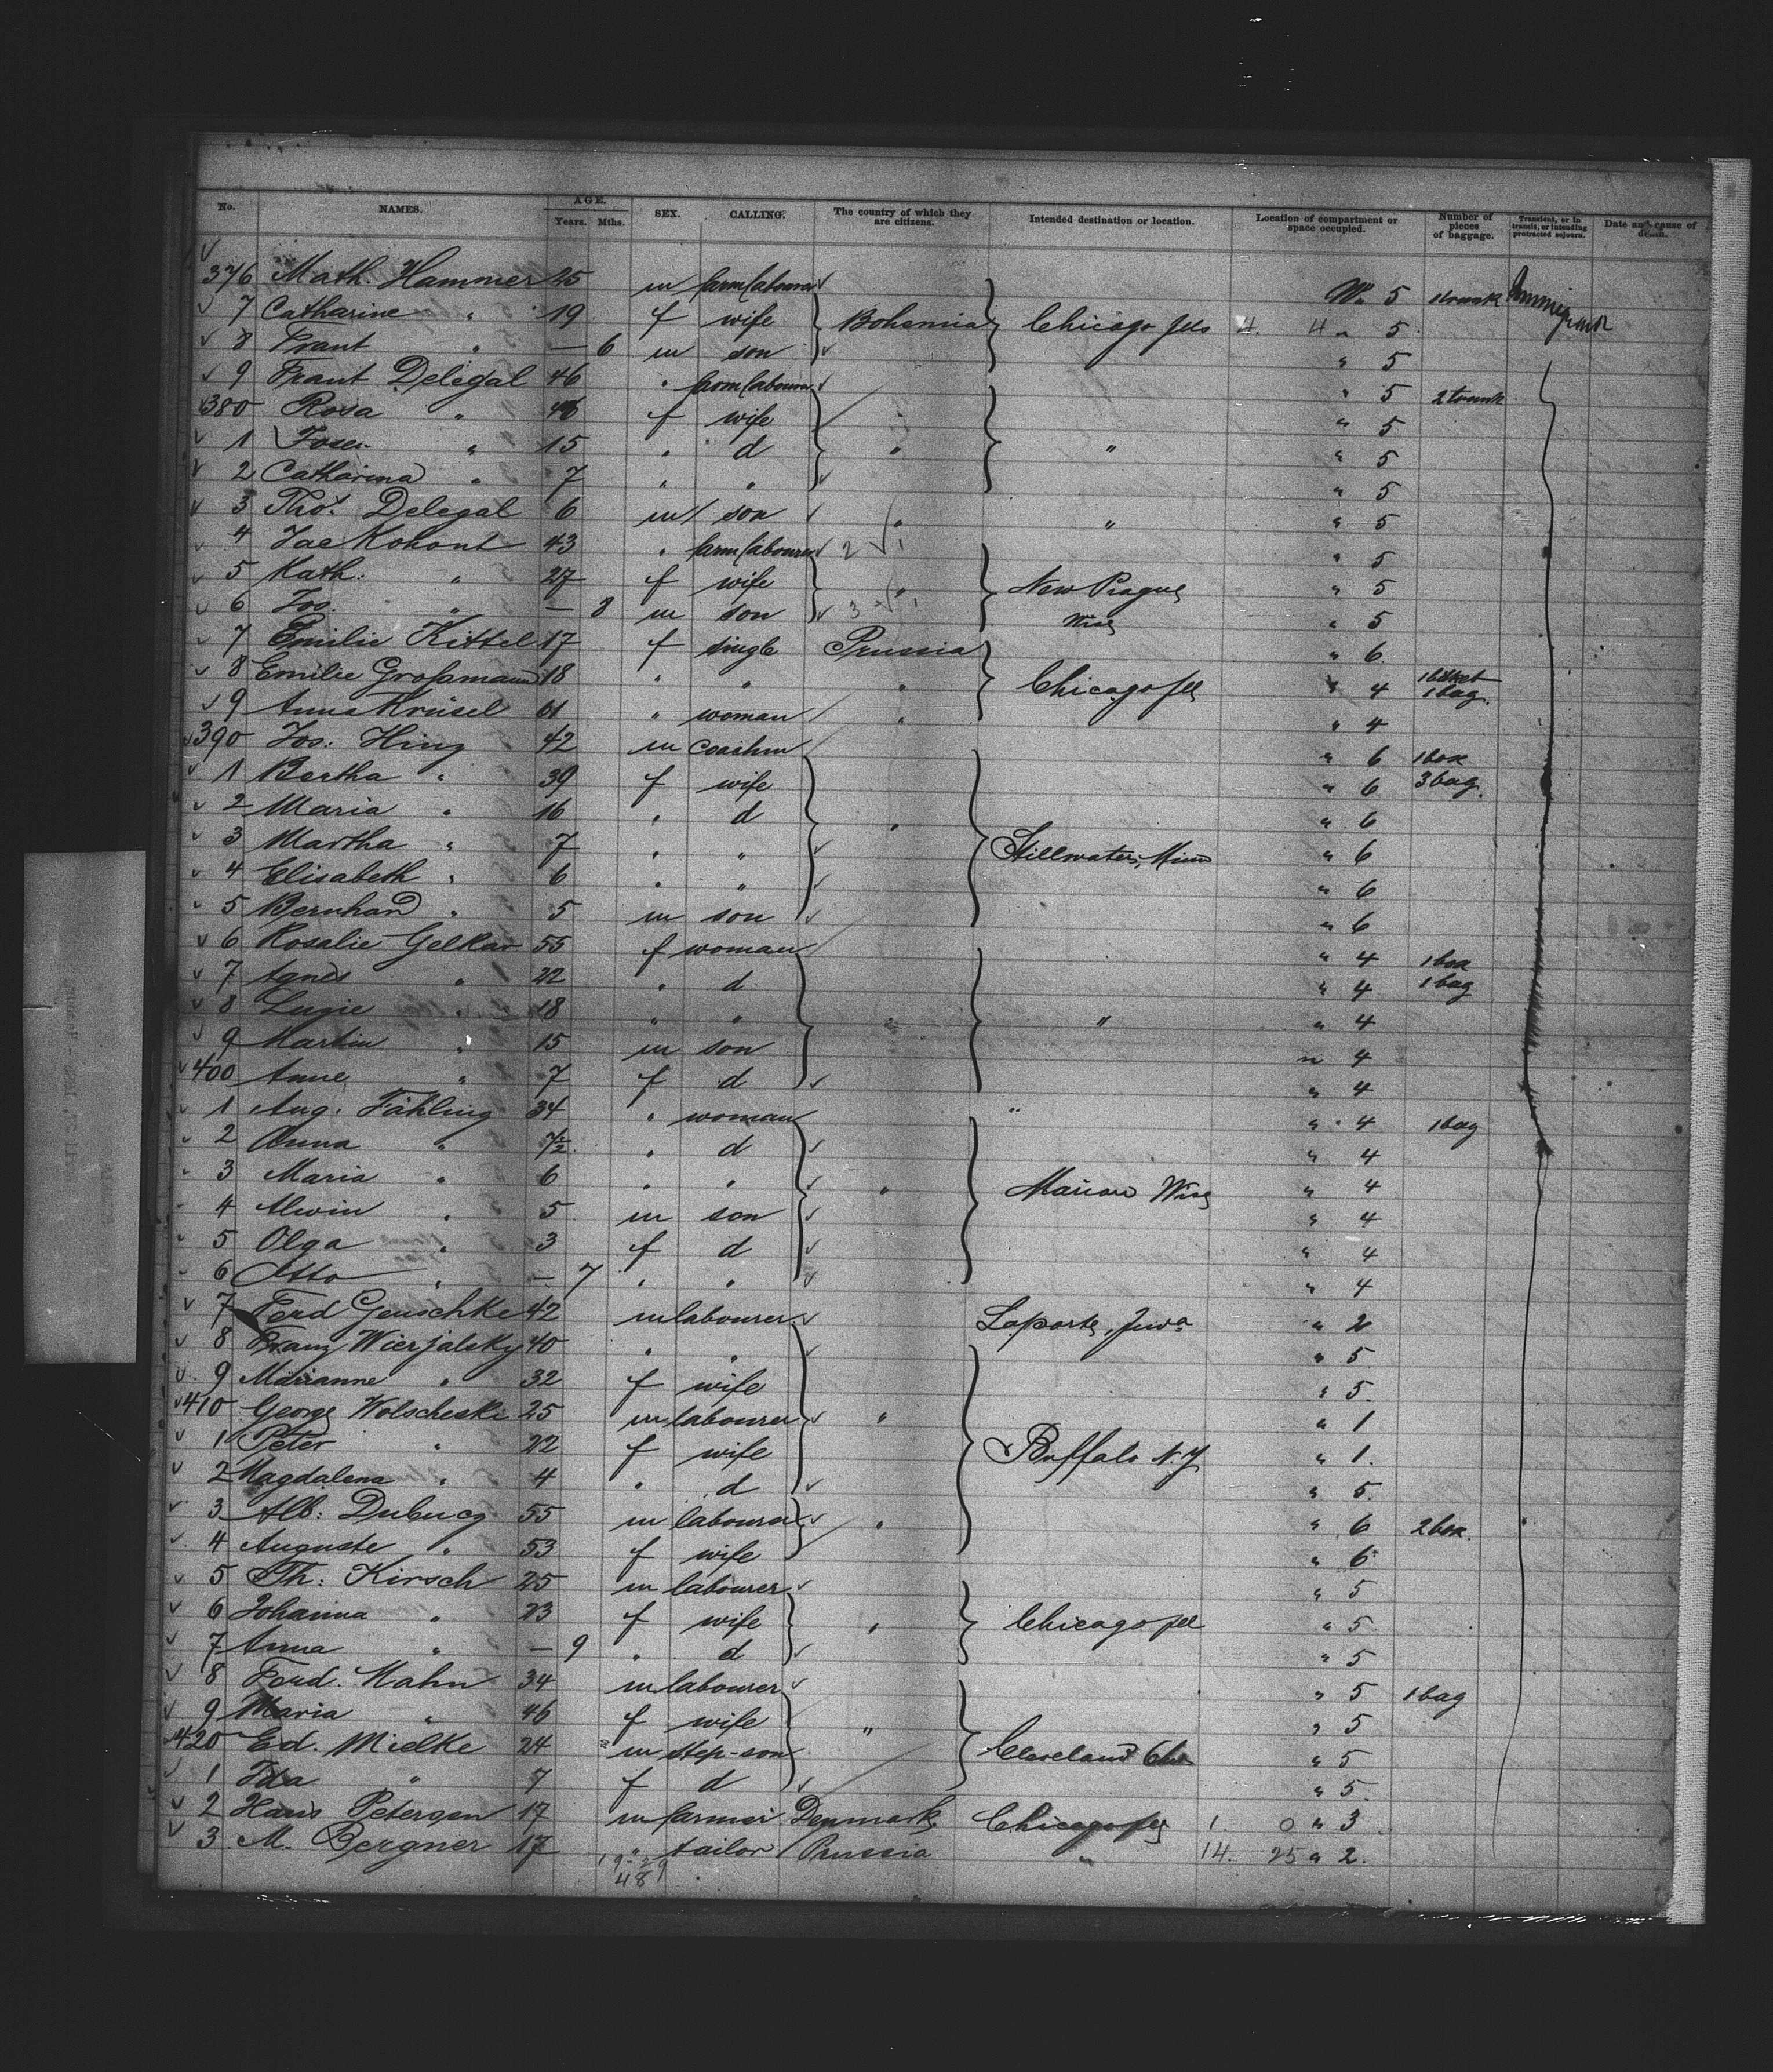 No. NAMES. AGE. Years. Mths. SEX. CALLING. The country of which they are citizens. Intended destination or location. Location of compartment or space occupied. Number of pieces of baggage. Transient, or in transit, or intending protracted sojourn. Date and cause of death.
376 Math. Hammer 25 m farm labourer W. 5 1 trunk
7 Catharine " 19 f wife Bohemia Chicago Ills 4. 4 " 5
8 Frant " — 6 m son " 5
9 Frant Delegal 46 " farm labourer " 5 2 trunk
380 Rosa " 46 f wife " 5
1 " 15 " d " " " 5
2 Catharina " 7 " " " 5
3 Tho. Delegal 6 m son " " " 5
4 Jac Kohont 43 " farm labourer 2 " 5
5 Kath. " 27 f wife " New Prague " 5
6 Jos. " — 8 m son 3 Wisc " 5
7 Emilie Kittel 17 f single Prussia " 6
8 Emilie Großmann 18 " " " Chicago Ill " 4 1 bag
9 Anna Krüsel 61 " woman " " 4
390 Jos: Hing 42 m coachm " 6 1 box
1 Bertha " 39 f wife " 6 3 bag.
2 Maria " 16 " d " " 6
3 Martha " 7 " " Stillwater, Minn " 6
4 Elisabeth " 6 " " " 6
5 Bernhard " 5 m son " 6
6 Rosalie Gelkar 55 f woman " 4 1 box
7 Agnes " 22 " d " 4 1 bag
8 Luzie " 18 " " " " " 4
9 Martin " 15 m son " 4
400 Anne " 7 f d " 4
1 Aug. Fähling 34 " woman " " 4 1 bag
2 Anna " 7½ " d " 4
3 Maria " 6 " " " Marion Wisc " 4
4 Alwin " 5 m son " 4
5 Olga " 3 f d " 4
6 Otto " — 7 " " " 4
7 Ferd Genschke 42 m labourer Laporte, Juwa " 2
8 Franz Wierjalsky 40 " " " 5
9 Marianne " 32 f wife " 5.
410 George Wolscheski 25 m labourer " " 1
1 Peter " 22 f wife Buffalo N.Y. " 1.
2 Magdalena " 4 " d " 5.
3 Alb: Dubucq 55 m labourer " " 6 2 box.
4 Auguste " 53 f wife " 6
5 Th: Kirsch 25 m labourer " 5
6 Johanna " 23 f wife " Chicago Ill " 5
7 Anna " — 9 " d " 5
8 Ferd. Mahn 34 m labourer " 5 1 bag
9 Maria " 46 f wife " " 5
420 Ed. Mielke 24 m step-son Cleveland Oh. " 5
1 Ida " 7 f d " 5.
2 Hans Petersen 17 m farmer Denmark Chicago Ill 1. 0 " 3
3 M. Bergner 17 " tailor Prussia " 14. 25 " 2.
48